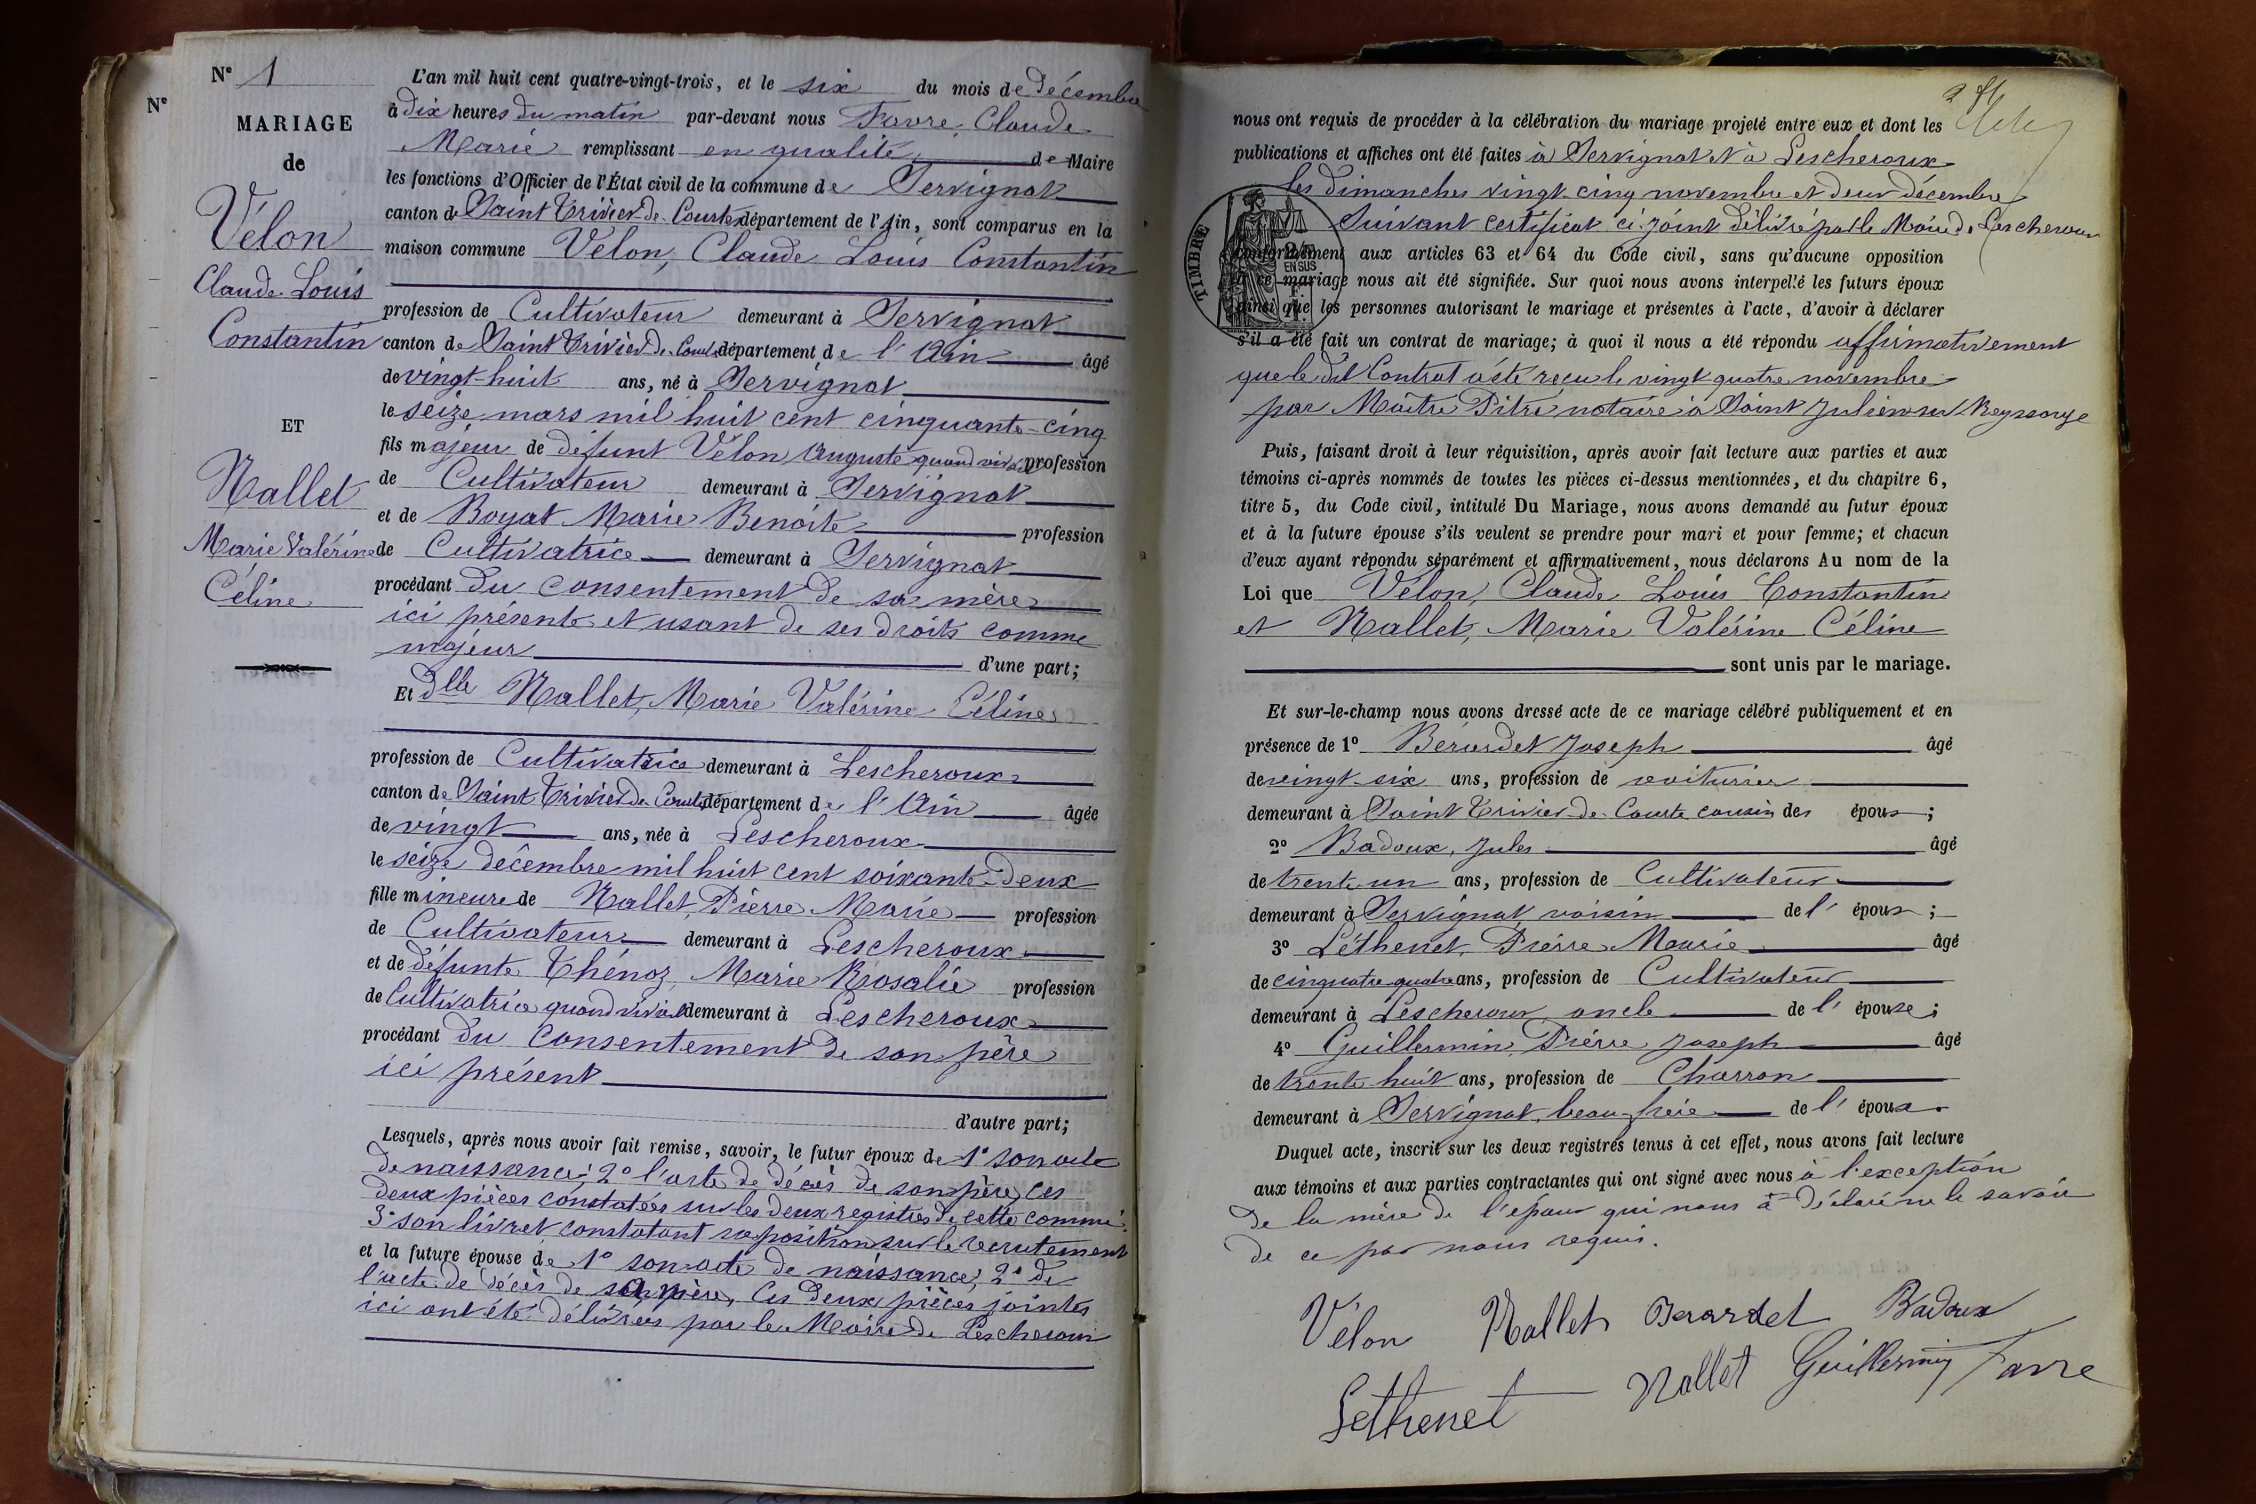 N° 1
N°
MARIAGE
de
Vélon
Claude Louis
Constantin
ET
Nallet
Marie Valérine
Céline
L'an mil huit cent quatre-vingt-trois, et le six du mois de décembre
à dix heures du matin par-devant nous Favre, Claude
Marie remplissant en qualité de Maire
les fonctions d'Officier de l'État civil de la commune de Servignat
canton de Saint Trivier-de-Courtes département de l'Ain, sont comparus en la
maison commune Vélon, Claude Louis Constantin
profession de Cultivateur demeurant à Servignat
canton de Saint Trivier-de-Courtes département de l'Ain âgé
de vingt-huit ans, né à Servignat
le seize mars mil huit cent cinquante-cinq
fils majeur de défunt Vélon Auguste quand vivait profession
de Cultivateur demeurant à Servignat
et de Boyat Marie Benoite profession
de Cultivatrice demeurant à Servignat
procédant du consentement de sa mère
ici présente et usant de ses droits comme
majeur d'une part;
Et Dlle Nallet, Marie Valérine Céline
profession de Cultivatrice demeurant à Lescheroux
canton de Saint Trivier-de-Courtes département de l'Ain âgée
de vingt ans, née à Lescheroux
le seize décembre mil huit cent soixante-deux
fille mineure de Nallet, Pierre Marie profession
de Cultivateur demeurant à Lescheroux
et de défunte Thénoz, Marie Rosalie profession
de Cultivatrice quand vivait demeurant à Lescheroux
procédant du consentement de son père
ici présent
d'autre part;
Lesquels, après nous avoir fait remise, savoir, le futur époux de 1° son acte
de naissance; 2° l'acte de décès de son père, ces
deux pièces constatées sur les deux registres de cette commune
3° son livret constatant sa position sur le recrutement
et la future épouse de 1° son acte de naissance; 2° de
l'acte de décès de sa mère, Ces deux pièces jointes
ici ont été délivrées par le Maire de Lescheroux
nous ont requis de procéder à la célébration du mariage projeté entre eux et dont les
publications et affiches ont été faites à Servignat et à Lescheroux
les dimanches vingt-cinq novembre et deux décembre
Suivant certificat ci-joint délivré par le Maire de Lescheroux
conformément aux articles 63 et 64 du Code civil, sans qu'aucune opposition
à ce mariage nous ait été signifiée. Sur quoi nous avons interpellé les futurs époux
ainsi que les personnes autorisant le mariage et présentes à l'acte, d'avoir à déclarer
s'il a été fait un contrat de mariage; à quoi il nous a été répondu affirmativement
que le dit Contrat a été reçu le vingt quatre novembre
par Maître Pitre notaire à Saint Julien sur Reyssouze
TIMBRE
2/10
EN SUS
Puis, faisant droit à leur réquisition, après avoir fait lecture aux parties et aux
témoins ci-après nommés de toutes les pièces ci-dessus mentionnées, et du chapitre 6,
titre 5, du Code civil, intitulé Du Mariage, nous avons demandé au futur époux
et à la future épouse s'ils veulent se prendre pour mari et pour femme; et chacun
d'eux ayant répondu séparément et affirmativement, nous déclarons Au nom de la
Loi que Vélon, Claude Louis Constantin
et Nallet, Marie Valérine Céline
sont unis par le mariage.
Et sur-le-champ nous avons dressé acte de ce mariage célébré publiquement et en
présence de 1° Bérardet Joseph âgé
de vingt-six ans, profession de voiturier
demeurant à Saint Trivier-de-Courtes cousin des époux;
2° Badoux, Jules âgé
de trente un ans, profession de Cultivateur
demeurant à Servignat voisin de l'époux;
3° Léthenet, Pierre Marie âgé
de cinquante quatre ans, profession de Cultivateur
demeurant à Lescheroux, oncle de l'épouse;
4° Guillermin, Pierre Joseph âgé
de trente huit ans, profession de Charron
demeurant à Servignat, beau-frère de l'époux.
Duquel acte, inscrit sur les deux registres tenus à cet effet, nous avons fait lecture
aux témoins et aux parties contractantes qui ont signé avec nous à l'exception
de la mère de l'époux qui nous a déclaré ne le savoir
de ce par nous requis.
Vélon Nallet Berardet Badoux
Lethenet Nallet Guillermin Favre